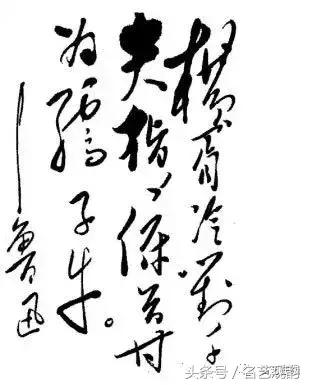 横眉冷对千
夫指，俯首甘
为孺子牛。
——鲁迅
头条号／名艺观韵